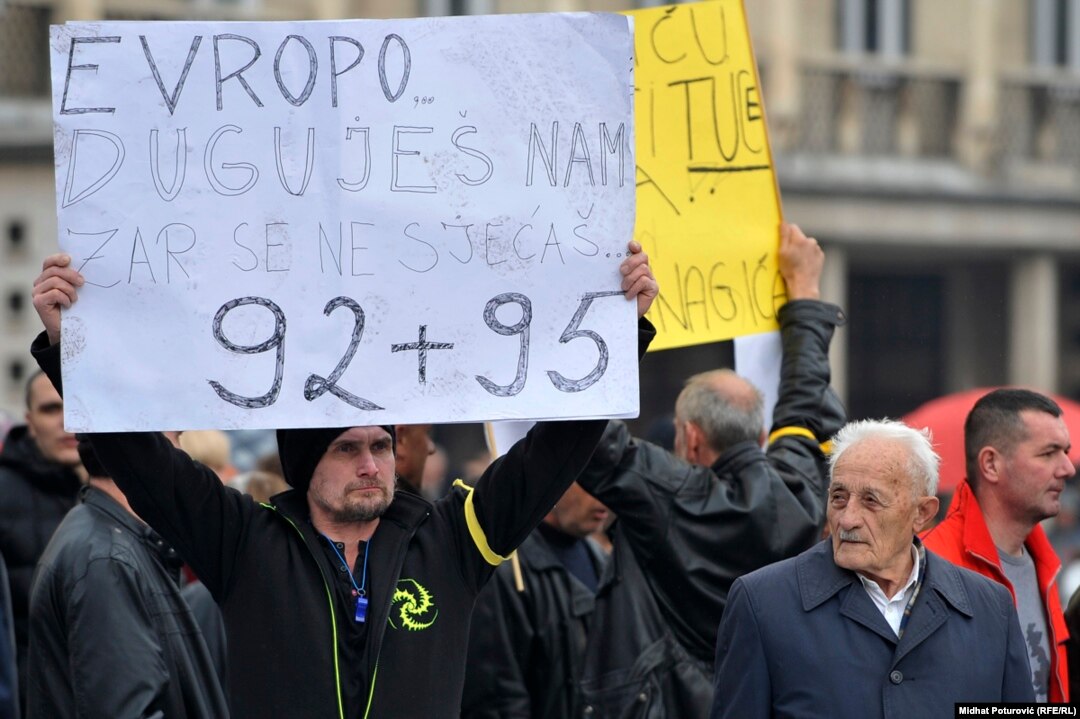 EVROPO...
DUGUJEŠ NAM
ZAR SE NE SJEĆAŠ...
92+95
ĆU
TUĐE
NAGIĆA
Midhat Poturović (RFE/RL)